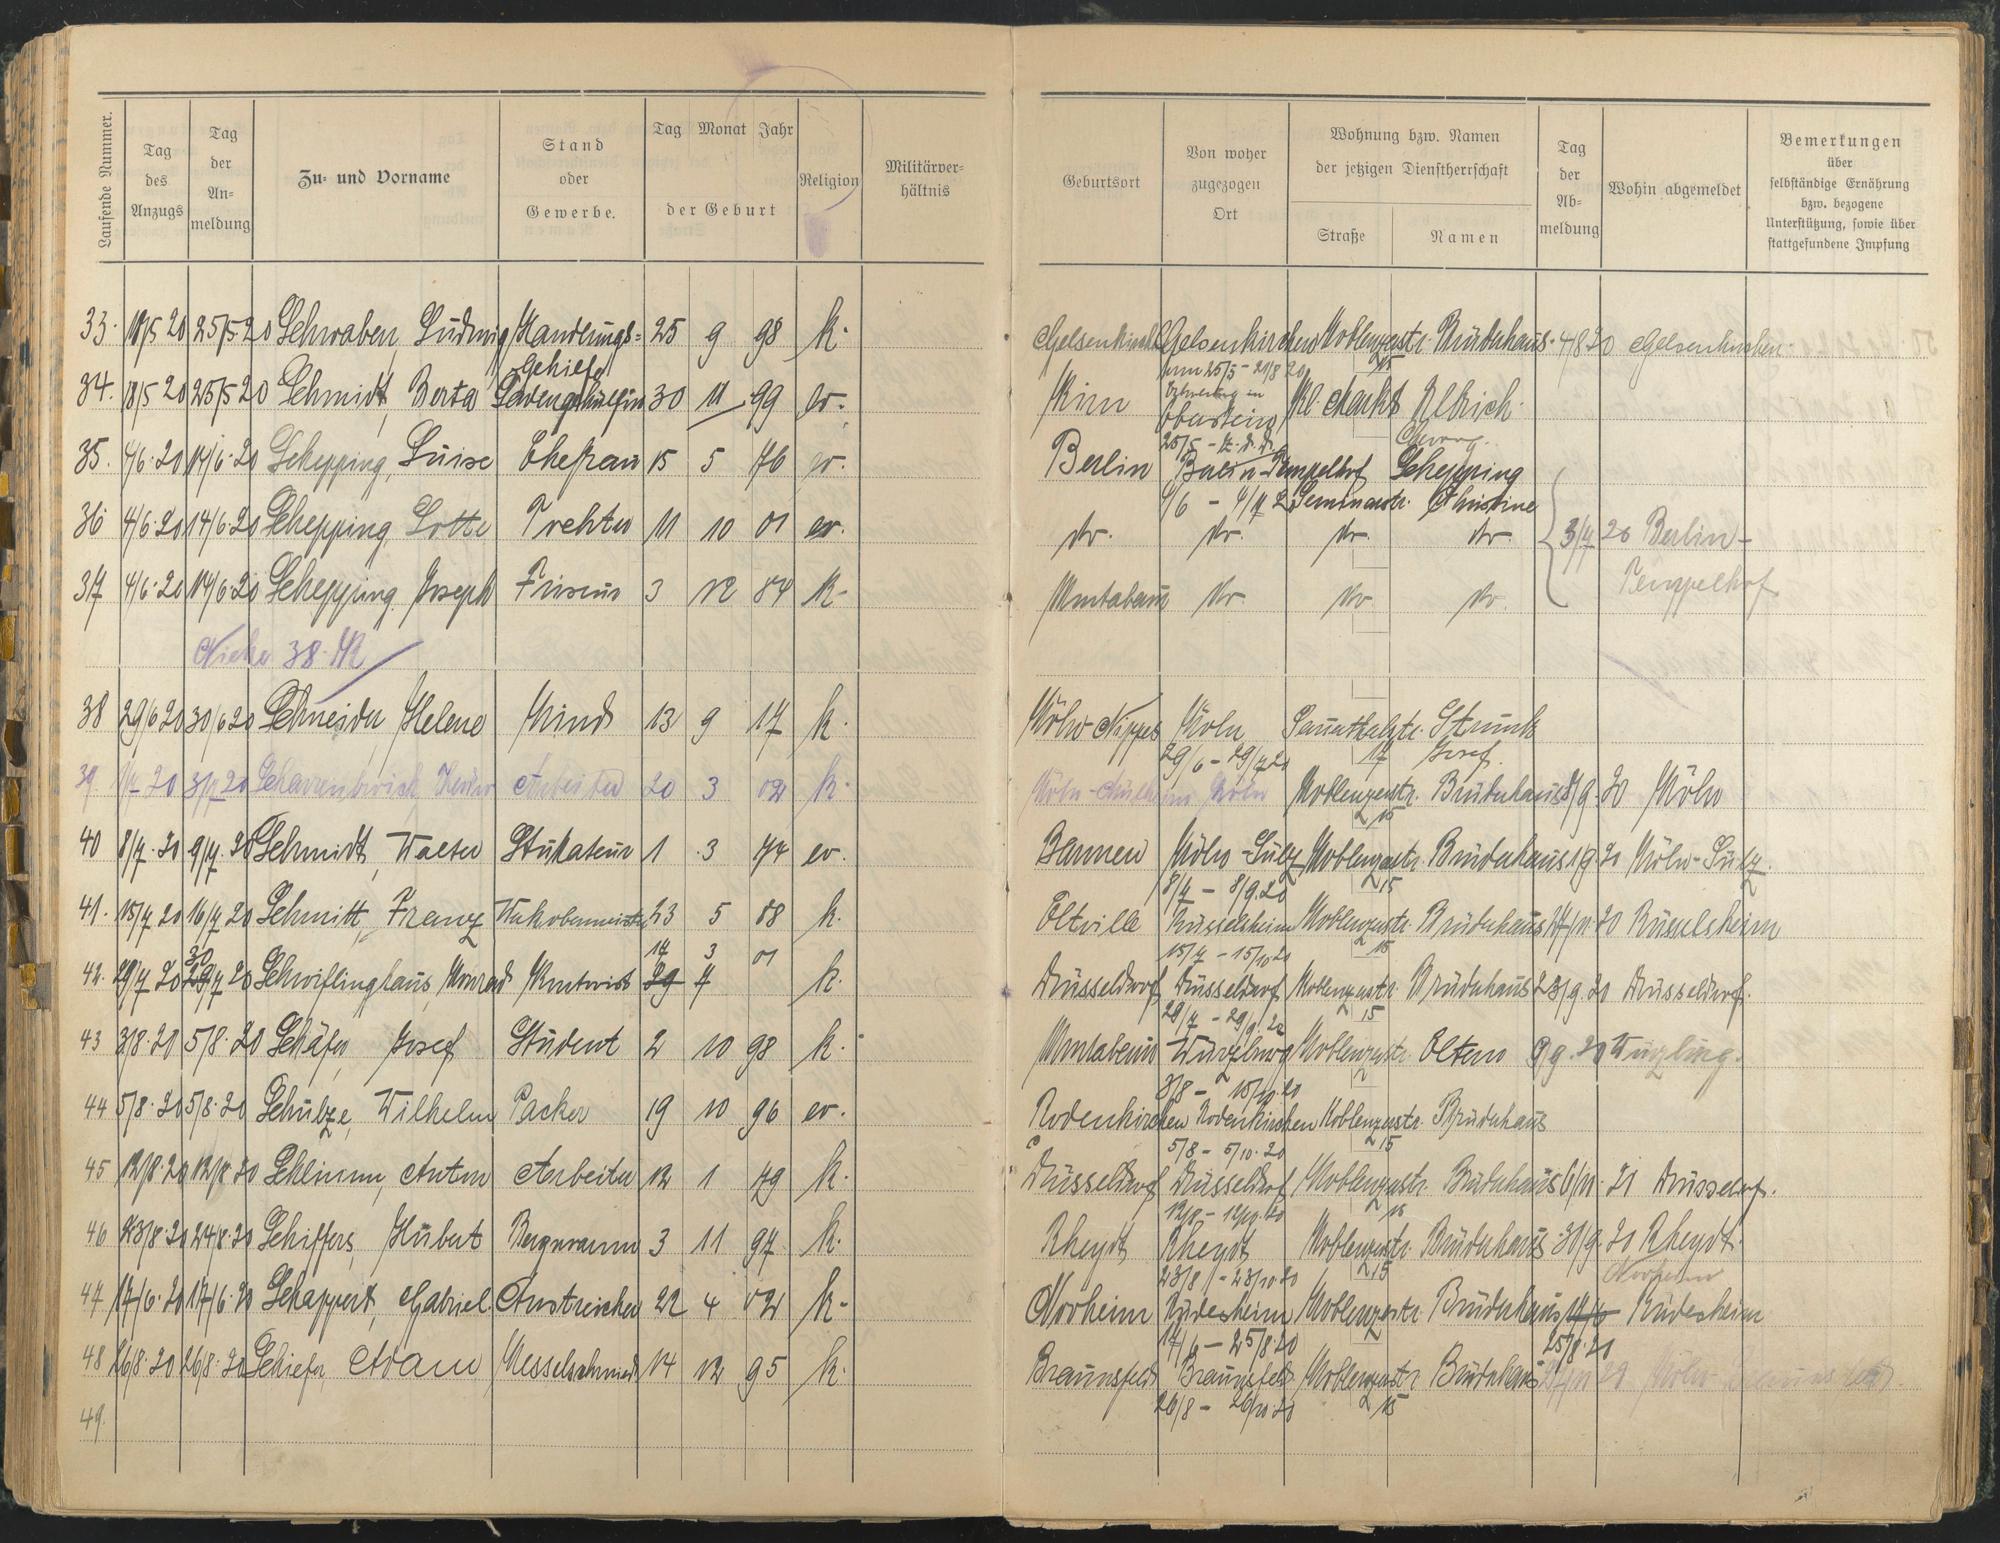 Laufende Nummer.
Tag des Anzugs
Tag der An-meldung
Zu- und Vorname
Stand oder Gewerbe.
Tag Monat Jahr
der Geburt
Religion
Militärver-hältnis
Geburtsort
Von woher zugezogen Ort
Wohnung bzw. Namen der jetzigen Dienstherrschaft
Straße
Namen
Tag der Ab-meldung
Wohin abgemeldet
Bemerkungen über selbständige Ernährung bzw. bezogene Unterstützung, sowie über stattgefundene Impfung
33. 18/5 20 25/5 20 Schwaben, Ludwig Handlungs- 25 9 98 k. Gelsenkirchen Gelsenkirchen Koblenzerstr. Brüderhaus 4/8 20 Gelsenkirchen
gehilfe 15
34. 18/5 20 25/5 20 Schmidt, Berta 30 11 99 ev. Kirn Oberstein Kl. Markt Ulrich
35. 4/6 20 14/6 20 Schepping, Luise Ehefrau 15 5 76 ev. Berlin Berlin-Tempelhof Schepping
4/6 - 4/7 2 Seminarstr. Christine
36 4/6 20 14/6 20 Schepping Lotte Tochter 11 10 01 ev. do. do. do. do. 3/7 20 Berlin-
Tempelhof
37 4/6 20 14/6 20 Schepping Joseph Friseur 3 12 84 k. Montabaur do. do. do.
Siehe 38. K
38 29/6 20 30/6 20 Schneider, Helene Kind 13 9 17 k. Köln-Nippes Köln Sauerthalstr. Strunk
29/6 - 29/7 20 17 Josef.
39 1/7 20 3/7 20 Arbeiter 20 3 02 k. Köln-Mülheim Köln Koblenzerstr. Brüderhaus 8/9 20 Köln
15
40 8/7 20 9/7 20 Schmidt, Walter Stukateur 1 3 74 ev. Barmen Köln-Sülz Koblenzerstr. Brüderhaus 1/9 20 Köln-Sülz.
8/7 - 8/9 20 15
41. 15/7 20 16/7 20 Schmitt, Franz 23 5 88 k. Eltville Rüsselsheim Koblenzerstr. Brüderhaus 17/11 20 Rüsselsheim
15/7 - 15/10 20 15
30 14 3 01
42. 29/7 20 29/7 20 Schwiflinghaus, Konrad Kontorist 29 7 k. Düsseldorf Düsseldorf Koblenzerstr. Brüderhaus 23/9 20 Düsseldorf.
29/7 - 29/9 20 15
43 3/8 20 5/8 20 Schäfer, Josef Student 2 10 98 k. Montabaur Würzburg Koblenzerstr. Eltern 9/9 20 Würzburg.
3/8 - 15/10 20
44 5/8 20 5/8 20 Schulze, Wilhelm Packer 19 10 96 ev. Rodenkirchen Rodenkirchen Koblenzerstr. Brüderhaus
5/8 - 5/10 20 15
45 12/8 20 12/8 20 Schlimm, Anton Arbeiter 12 1 79 k. Düsseldorf Düsseldorf Koblenzerstr. Brüderhaus 6/11 21 Düsseldorf.
12/8 - 12/10 20 15
46 23/8 20 24/8 20 Schiffers, Hubert Bergmann 3 11 97 k. Rheydt Rheydt Koblenzerstr. Brüderhaus 30/9 20 Rheydt.
23/8 - 23/10 20 15 Norheim
47 17/6 20 17/6 20 Schappert, Gabriel Anstreicher 22 4 02 k. Norheim Büdesheim Koblenzerstr. Brüderhaus Büdesheim
17/6 - 25/8 20 25/8 20
48 26/8 20 26/8 20 Schiefer, Adam Messerschmied 14 12 95 k. Braunsfeld Braunsfeld Koblenzerstr. Brüderhaus Köln Braunsfeld.
26/8 - 26/10 20 15
49.